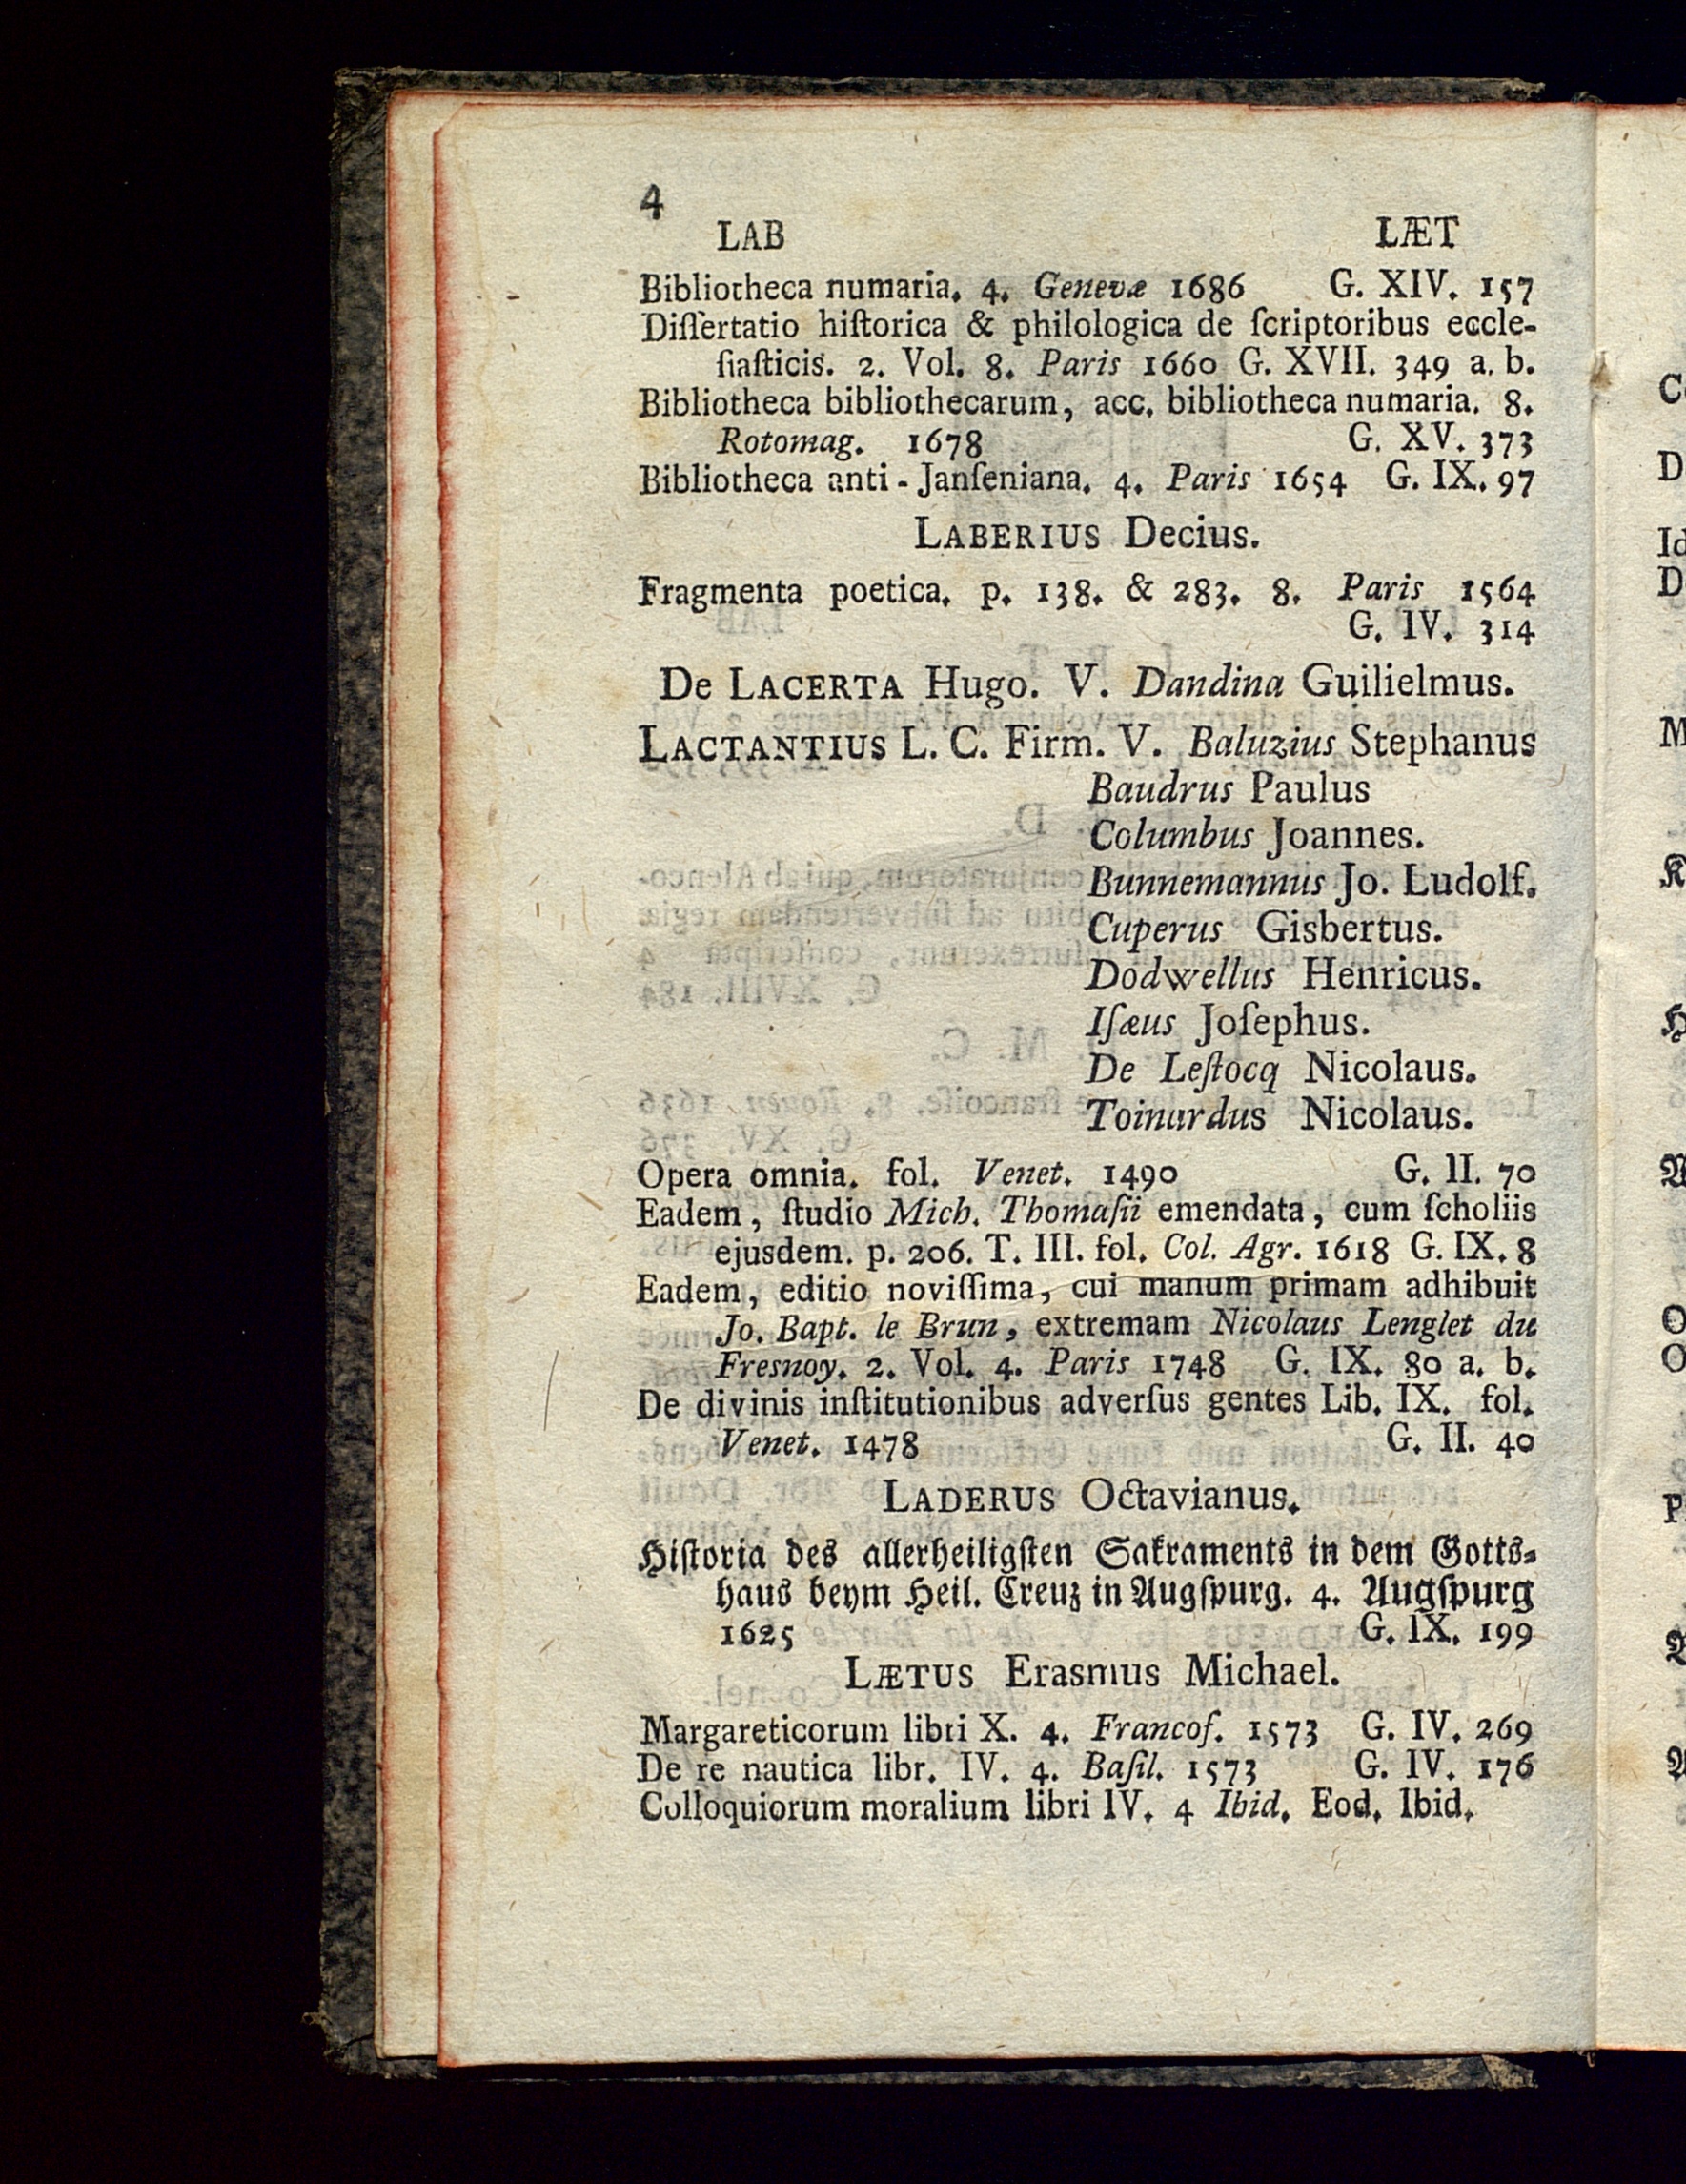 4
LAB LÆT
Bibliotheca numaria. 4. Genevæ 1686 G. XIV. 157
Diſſertatio hiſtorica & philologica de ſcriptoribus eccle-
ſiaſticis. 2. Vol. 8. Paris 1660 G. XVII. 349 a. b.
Bibliotheca bibliothecarum, acc. bibliotheca numaria. 8.
Rotomag. 1678 G. XV. 373
Bibliotheca anti-Janſeniana. 4. Paris 1654 G. IX. 97
LABERIUS Decius.
Fragmenta poetica. p. 138. & 283. 8. Paris 1564
G. IV. 314
De LACERTA Hugo. V. Dandina Guilielmus.
LACTANTIUS L. C. Firm. V. Baluzius Stephanus
Baudrus Paulus
Columbus Joannes.
Bunnemannus Jo. Ludolf.
Cuperus Gisbertus.
Dodwellus Henricus.
Iſæus Joſephus.
De Leſtocq Nicolaus.
Toinardus Nicolaus.
Opera omnia. fol. Venet. 1490 G. II. 70
Eadem, ſtudio Mich. Thomaſii emendata, cum ſcholiis
ejusdem. p. 206. T. III. fol. Col. Agr. 1618 G. IX. 8
Eadem, editio noviſſima, cui manum primam adhibuit
Jo. Bapt. le Brun, extremam Nicolaus Lenglet du
Fresnoy. 2. Vol. 4. Paris 1748 G. IX. 80 a. b.
De divinis inſtitutionibus adverſus gentes Lib. IX. fol.
Venet. 1478 G. II. 40
LADERUS Octavianus.
Hiſtoria des allerheiligſten Sakraments in dem Gotts-
haus beym Heil. Creuz in Augſpurg. 4. Augſpurg
1625 G. IX. 199
LÆTUS Erasmus Michael.
Margareticorum libri X. 4. Francof. 1573 G. IV. 269
De re nautica libr. IV. 4. Baſil. 1573 G. IV. 176
Colloquiorum moralium libri IV. 4 Ibid. Eod. Ibid.